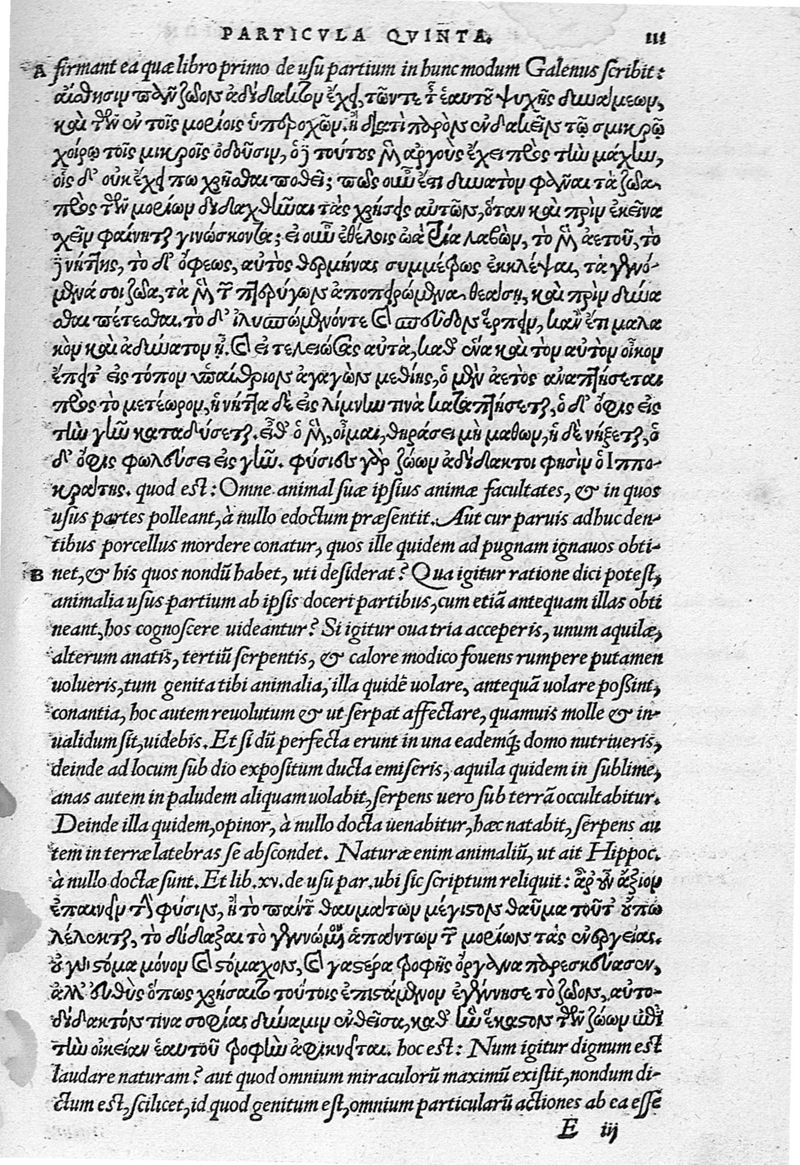 PARTICVLA QVINTA. III
A firmant ea quæ libro primo de usu partium in hunc modum Galenus scribit:
αἴσθησιν πᾶν ζῶον ἀδίδακτον ἔχει, τῶν τε τ̃ ἑαυτοῦ ψυχῆς δυνάμεων,
καὶ τῶν ἐν τοῖς μορίοις ὑπεροχῶν. ἢ διὰ τί παρὸν ἐνδακεῖν τῷ σμικρῷ
χοίρῳ τοῖς μικροῖς ὀδοῦσιν, ὁ δὲ τούτους μὲν ἀργοὺς ἔχει πρὸς τὴν μάχην,
οἷς δ' οὐκ ἔχει πω χρῆσθαι ποθεῖ; πῶς οὖν ἔτι δυνατὸν φάναι τὰ ζῶα
πρὸς τῶν μορίων διδαχθῆναι τὰς χρήσεις αὐτῶν, ὅταν καὶ πρὶν ἐκεῖνα
σχεῖν φαίνηται γινώσκοντα; εἰ οὖν ἐθέλοις ὠὰ τρία λαβὼν, τὸ μὲν ἀετοῦ, τὸ
δὲ νήττης, τὸ δ' ὄφεως, αὐτὸς θερμήνας συμμέτρως ἐκκλέψαι, τὰ γενό-
μενά σοι ζῶα, τὰ μὲν τῶν πτερύγων ἀποπειρώμενα θεάσῃ, καὶ πρὶν δύνα
σθαι πέτεσθαι. τὸ δ' ἰλυσπώμενόν τε καὶ σπεῦδον ἕρπειν, κἂν ἔτι μαλα
κὸν καὶ ἀδύνατον ᾖ. καὶ εἰ τελειώσας αὐτὰ, καθ' ἕνα καὶ τὸν αὐτὸν οἶκον
ἔπειτ' εἰς τόπον ὑπαίθριον ἀγαγὼν μεθίης, ὁ μὲν ἀετὸς ἀναπτήσεται
πρὸς τὸ μετέωρον, ἡ νῆττα δὲ εἰς λίμνην τινὰ καταπτήσεται, ὁ δ' ὄφις εἰς
τὴν γῆν καταδύσεται. εἶθ' ὁ μὲν, οἶμαι, θηράσει μὴ μαθὼν, ἡ δὲ νήξεται, ὁ
δ' ὄφις φωλεύσει εἰς γῆν. φύσιες γὰρ ζώων ἀδίδακτοι φησὶν ὁ Ἱππο-
κράτης. quod est: Omne animal suæ ipsius animæ facultates, & in quos
usus partes polleant, à nullo edoctum præsentit. Aut cur paruis adhuc den-
tibus porcellus mordere conatur, quos ille quidem ad pugnam ignauos obti-
B net, & his quos nondũ habet, uti desiderat? Qua igitur ratione dici potest,
animalia usus partium ab ipsis doceri partibus, cum etiã antequam illas obti
neant, hos cognoscere uideantur? Si igitur oua tria acceperis, unum aquilæ,
alterum anatis, tertiũ serpentis, & calore modico fouens rumpere putamen
uolueris, tum genita tibi animalia, illa quidẽ uolare, antequã uolare possint,
conantia, hoc autem reuolutum & ut serpat affectare, quamuis molle & in-
ualidum sit, uidebis. Et si dũ perfecta erunt in una eademq́; domo nutriueris,
deinde ad locum sub dio expositum ducta emiseris, aquila quidem in sublime,
anas autem in paludem aliquam uolabit, serpens uero sub terrã occultabitur.
Deinde illa quidem, opinor, à nullo docta uenabitur, hæc natabit, serpens au
tem in terræ latebras se abscondet. Naturæ enim animaliũ, ut ait Hippoc.
à nullo doctæ sunt. Et lib. xv. de usu par. ubi sic scriptum reliquit: ἆρ' οὖν ἄξιον
ἐπαινεῖν τὴν φύσιν, ἢ τὸ πάντων θαυμάτων μέγιστον θαῦμα τοῦτ' οὔπω
λέλεκται, τὸ διδάξαι τὸ γεννώμενον ἁπάντων τῶν μορίων τὰς ἐνεργείας.
οὐ γὰρ στόμα μόνον καὶ στόμαχον, καὶ γαστέρα τροφῆς ὄργανα παρεσκεύασεν,
ἀλλ' εὐθὺς ὅπως χρήσαιτο τούτοις ἐπιστάμενον ἐγέννησε τὸ ζῶον, αὐτο-
δίδακτόν τινα σοφίας δύναμιν ἐνθεῖσα, καθ' ἣν ἕκαστον τῶν ζώων ἐπὶ
τὴν οἰκείαν ἑαυτοῦ τροφὴν ἀφικνεῖται. hoc est: Num igitur dignum est
laudare naturam? aut quod omnium miraculorũ maximũ existit, nondum di-
ctum est, scilicet, id quod genitum est, omnium particularũ actiones ab ea esse
E iij